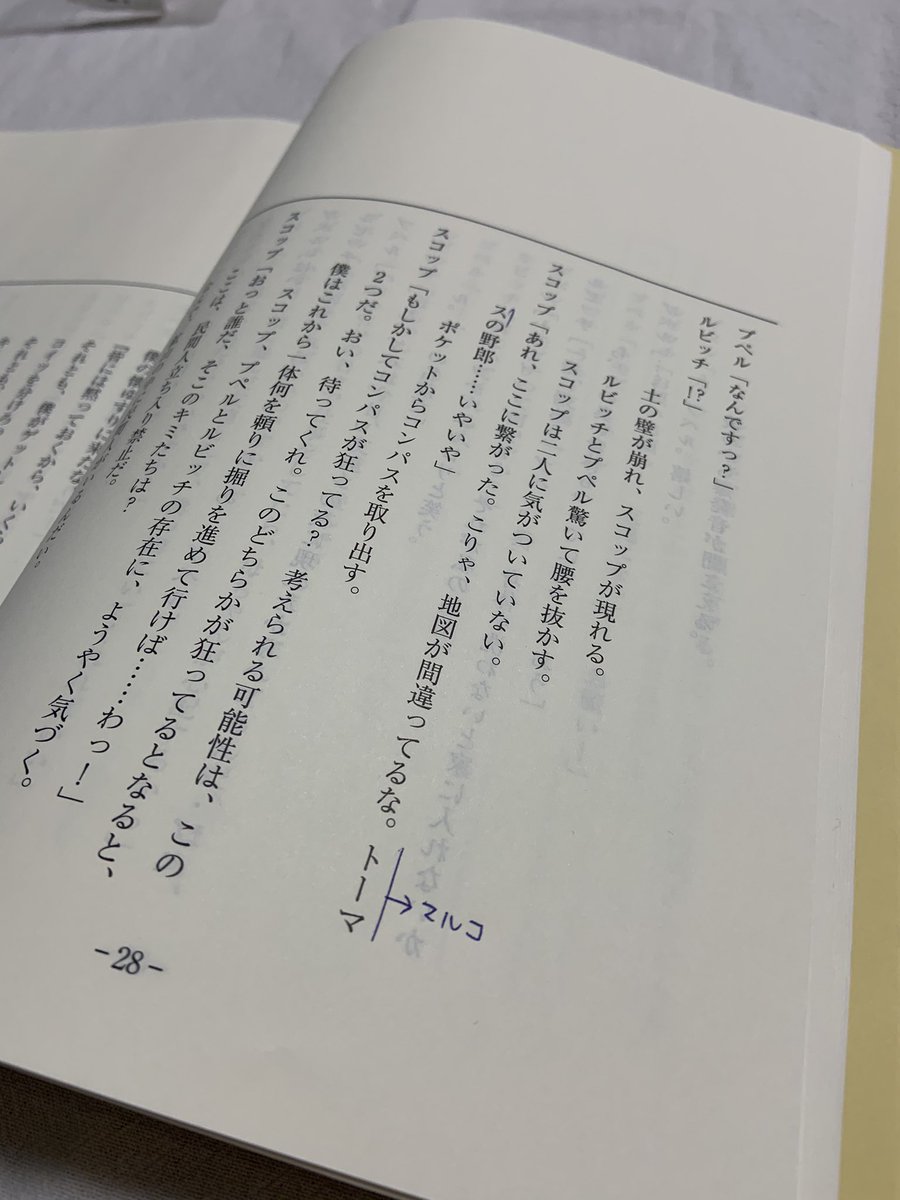 プペル「なんですっ？」
ルビッチ「!?」
土の壁が崩れ、スコップが現れる。
ルビッチとプペル驚いて腰を抜かす。
スコップは二人に気がついていない。
スコップ「あれ、ここに繋がった。こりゃ、地図が間違ってるな。トーマ
→マルコ
スの野郎……いやいや」
ポケットからコンパスを取り出す。
スコップ「もしかしてコンパスが狂ってる？ 考えられる可能性は、この
2つだ。おい、待ってくれ。このどちらかが狂ってるとなると、
僕はこれから一体何を頼りに掘りを進めて行けば……わっ！」
スコップ、プペルとルビッチの存在に、ようやく気づく。
スコップ「おっと誰だ、そこのキミたちは？
ここは、民間人立ち入り禁止だ。
-28-